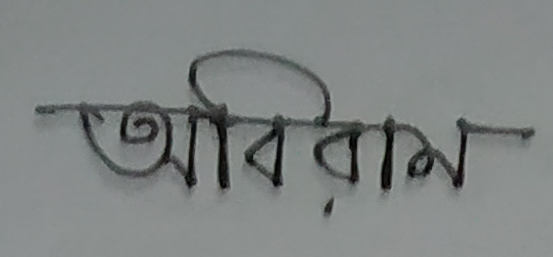 অবিরাম